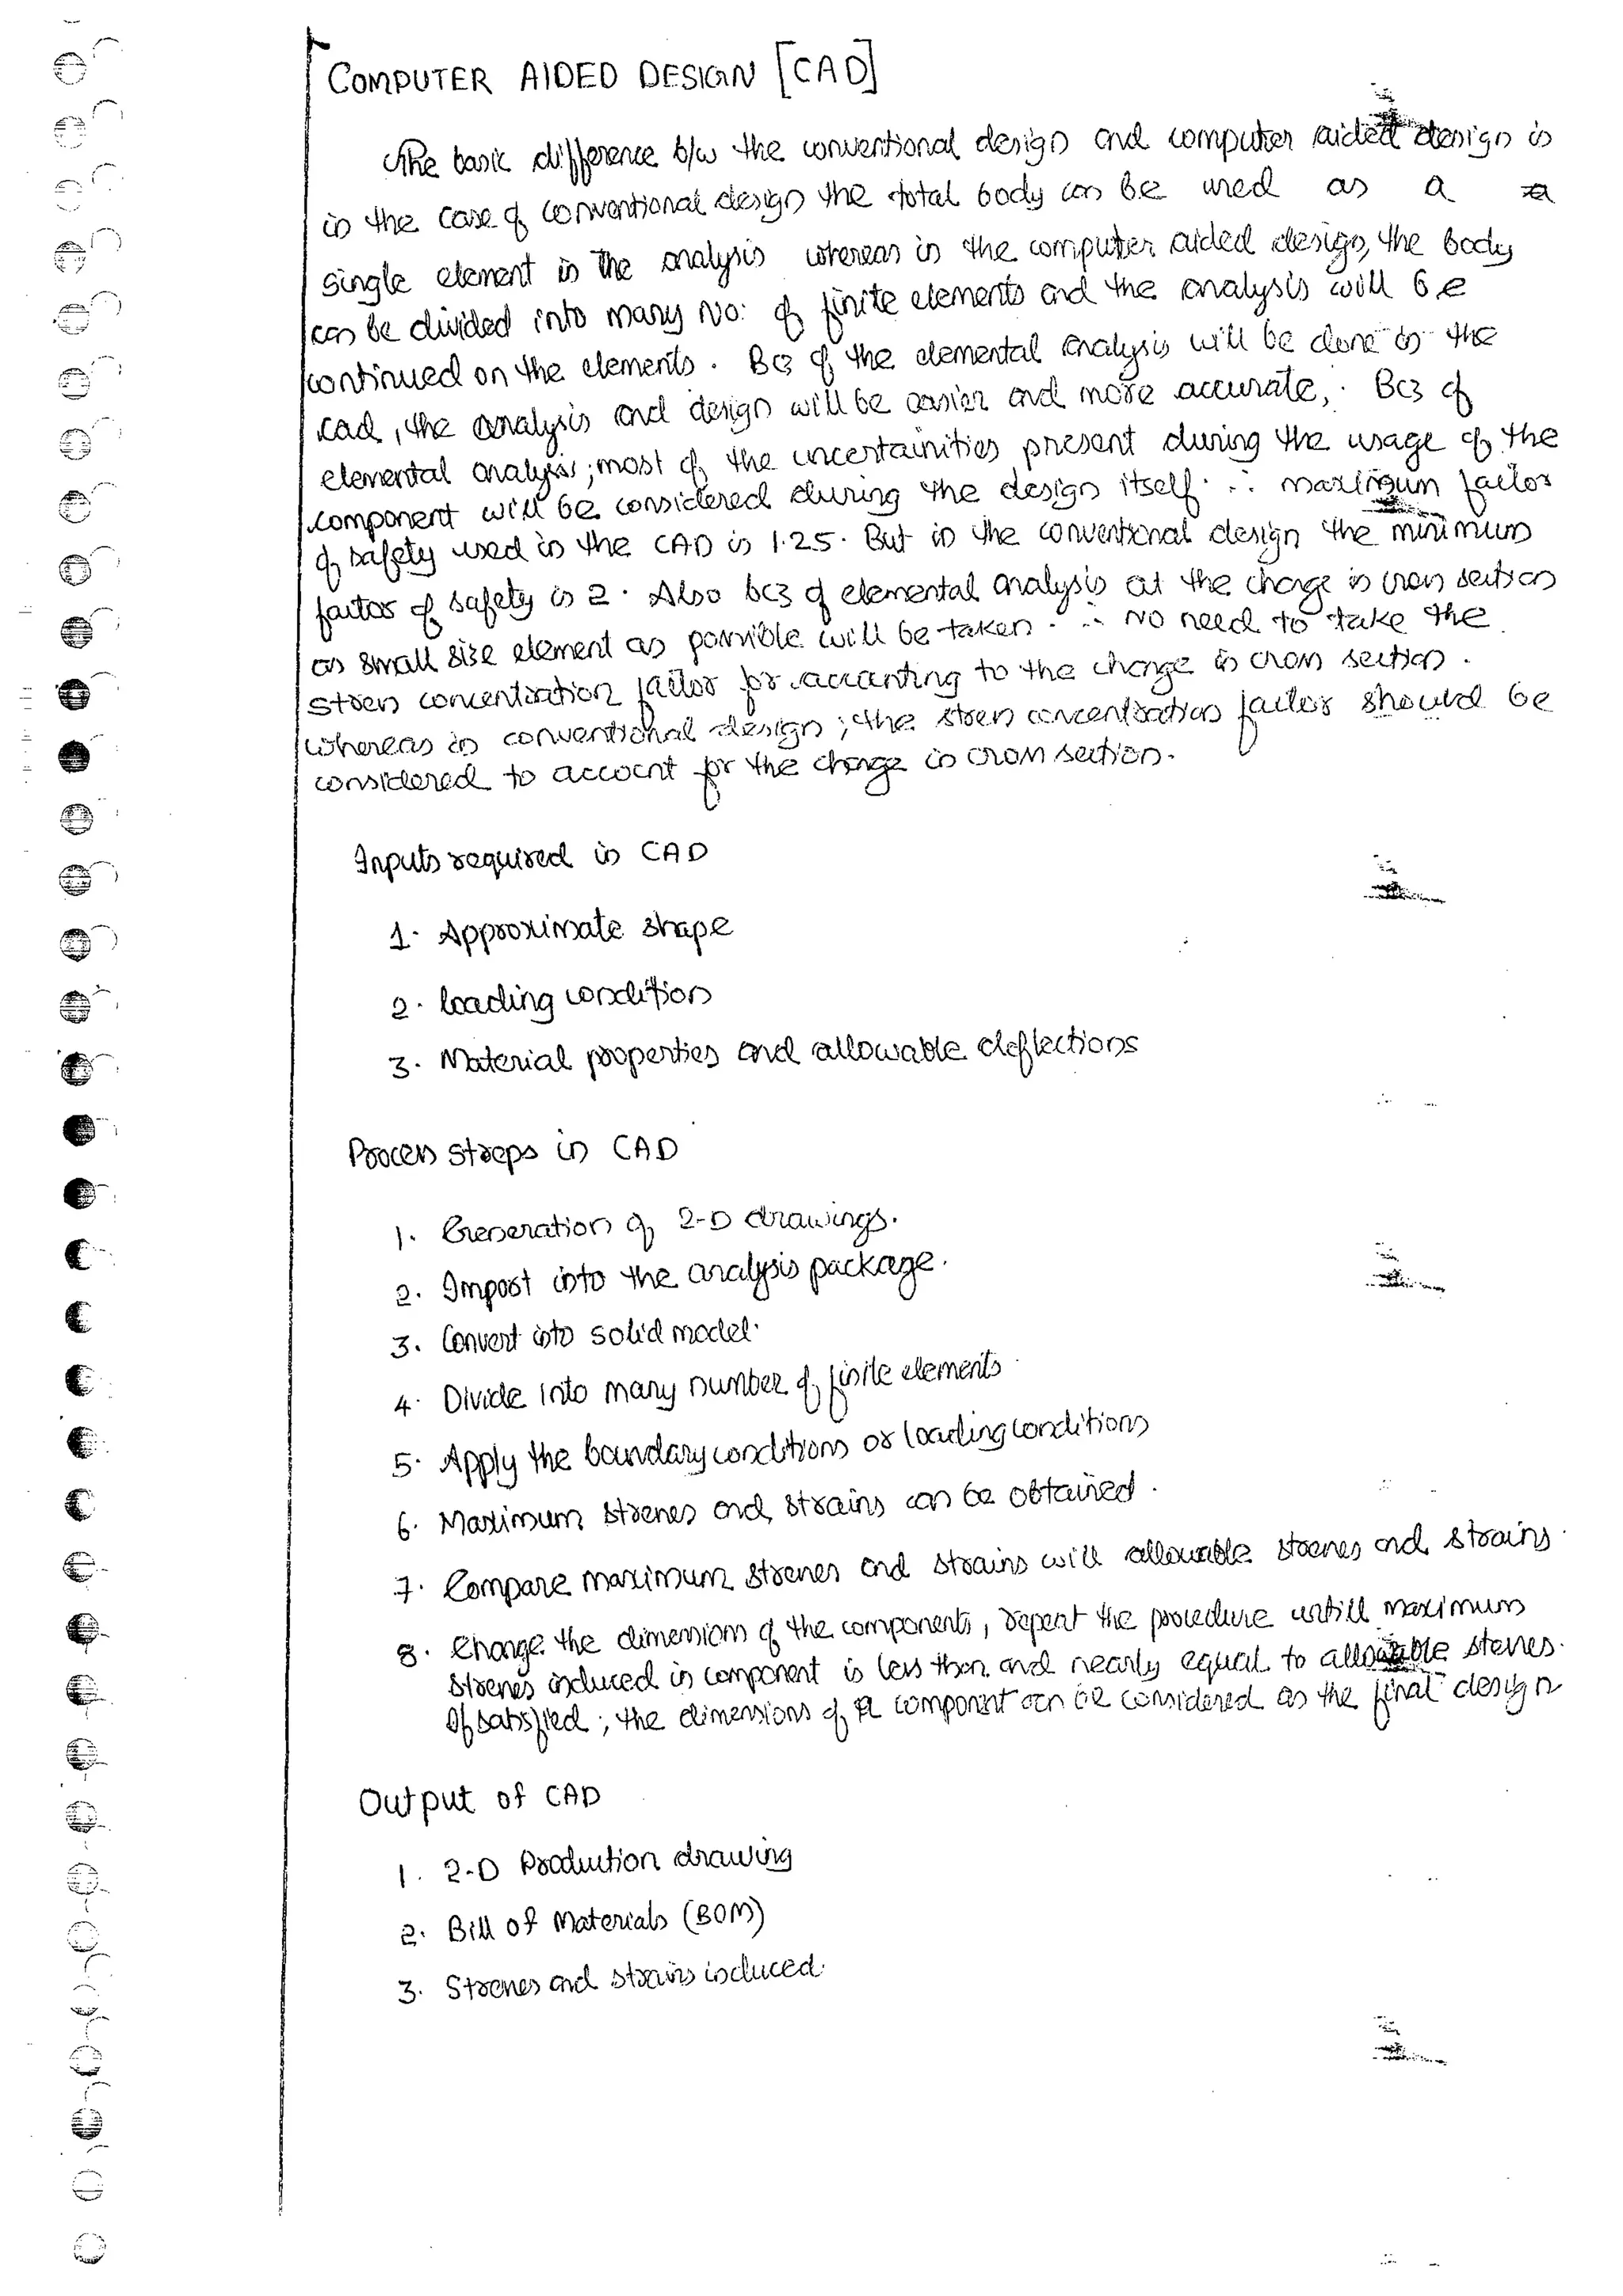 COMPUTER AIDED DESIGN [CAD]
The basic difference b/w the conventional design and computer aided design is
in the case of conventional design the total body can be used as a
single element in the analysis whereas in the computer aided design, the body
can be divided into many No: of finite elements and the analysis will be
continued on the elements. Bcz of the elemental analysis will be done in the
cad, the analysis and design will be easier and more accurate,. Bcz of
elemental analysis; most of the uncertainities present during the usage of the
component will be considered during the design itself. ∴ maximum factor
of safety used in the CAD is 1.25. But in the conventional design the minimum
factor of safety is 2. Also bcz of elemental analysis at the change in cross section
as small size element as possible will be taken. ∴ No need to take the
stress concentration factor for accounting to the change in cross section.
whereas in conventional design; the stress concentration factor should be
considered to account for the change in cross section.
Inputs required in CAD
1. Approximate shape
2. loading condition
3. Material properties and allowable deflections
Process streps in CAD
1. Generation of 2-D drawings.
2. Import into the analysis package.
3. Convert into solid model.
4. Divide into many number of finite elements
5. Apply the boundary conditions or loading conditions
6. Maximum stresses and strains can be obtained.
7. Compare maximum stresses and strains will allowable stresses and strains.
8. Change the dimensions of the components, repeat the procedure untill maximum
stresses induced in component is less than and nearly equal to allowable stresses.
If satisfied; the dimensions of a component can be considered as the final design
Output of CAD
1. 2-D Production drawing
2. Bill of Materials (BOM)
3. Stresses and strains induced.